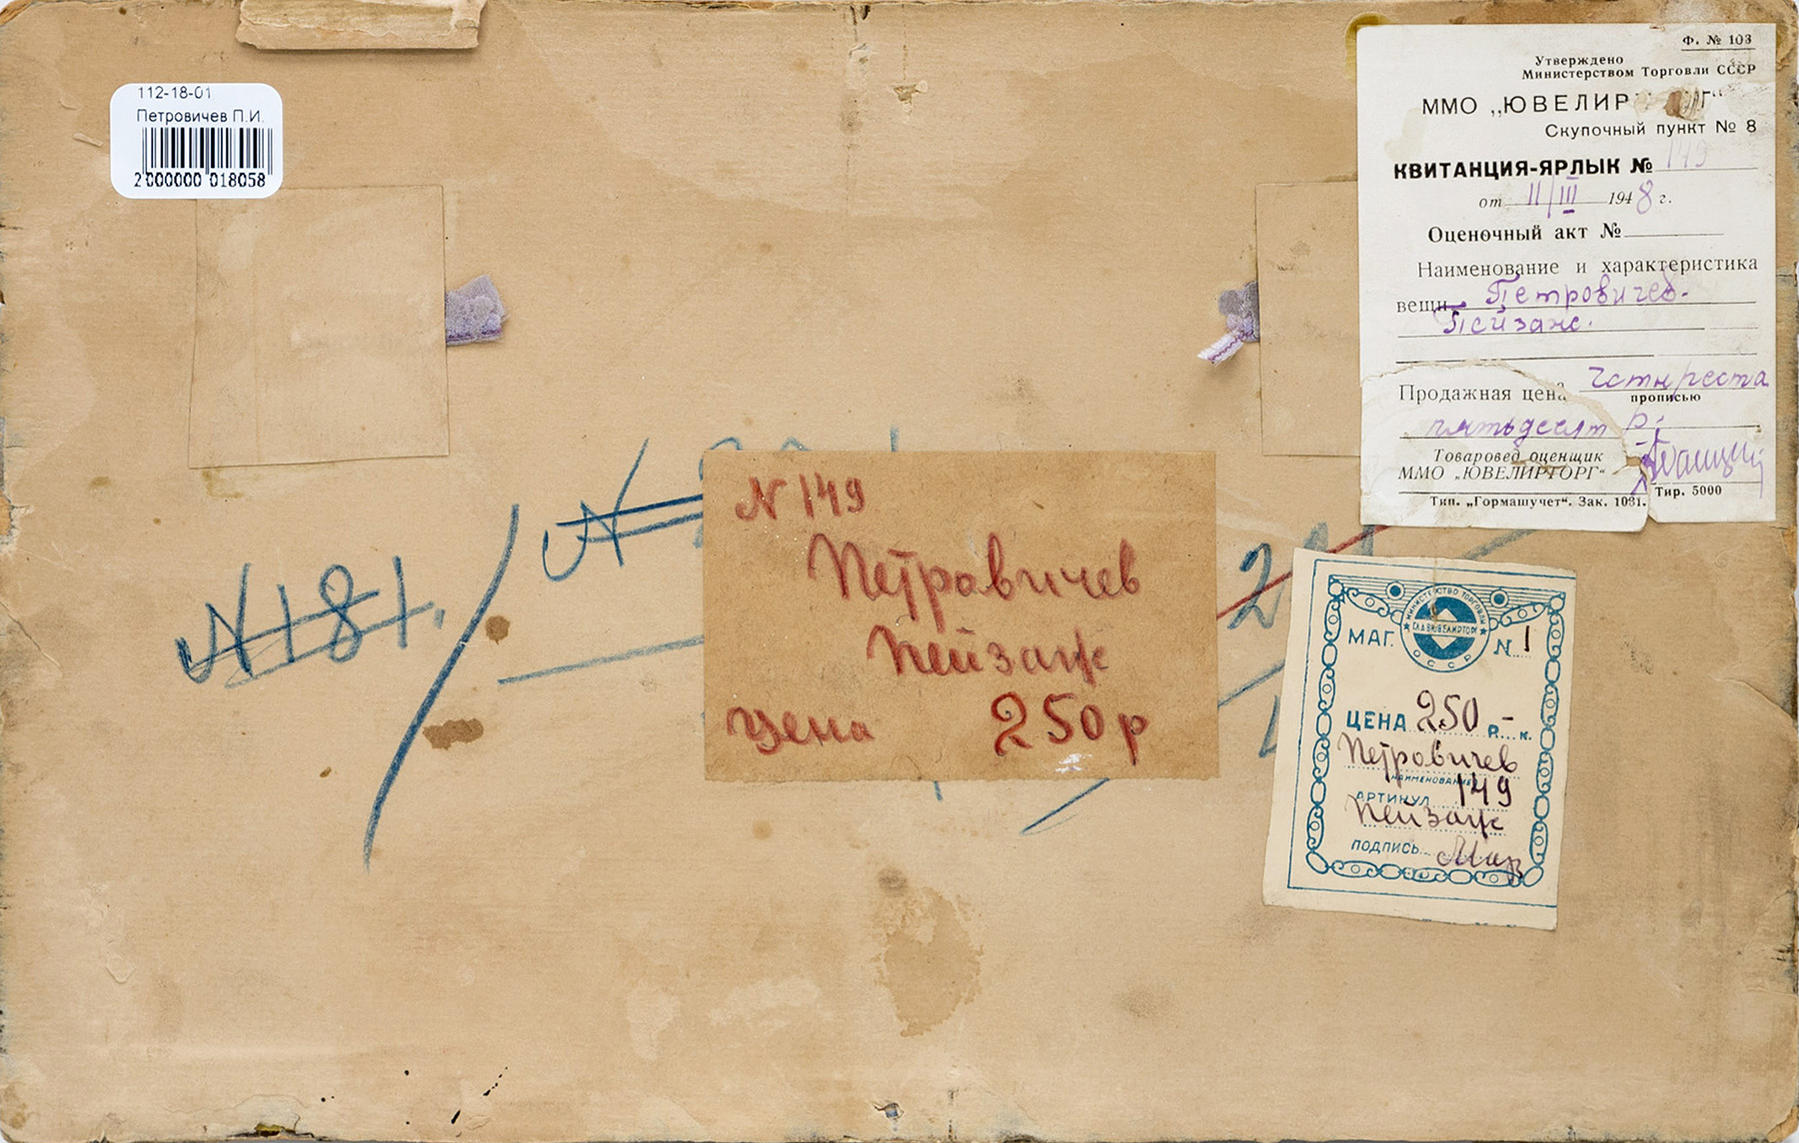 112-18-01
Петровичев П.И.
2 000000 018058
Ф. № 103
Утверждено
Министерством Торговли СССР
ММО „ЮВЕЛИР Г“
Скупочный пункт № 8
КВИТАНЦИЯ-ЯРЛЫК № 149
от 11/III 1948 г.
Оценочный акт №
Наименование и характеристика
вещи Петровичев.
Пейзаж.
Продажная цена четыреста
прописью
пятьдесят р.
Товаровед оценщик
ММО „ЮВЕЛИРТОРГ“
Тип. „Гормашучет“. Зак. 1081. Тир. 5000
N 181.
N
N 149
Петровичев
Пейзаж
цена 250 р
2
МИНИСТЕРСТВО ТОРГОВЛИ
ГЛАВЮВЕЛИРТОРГ
СССР
МАГ. N 1
ЦЕНА 250 Р. – К.
Петровичев
НАИМЕНОВАНИЕ
АРТИКУЛ 149
Пейзаж
ПОДПИСЬ